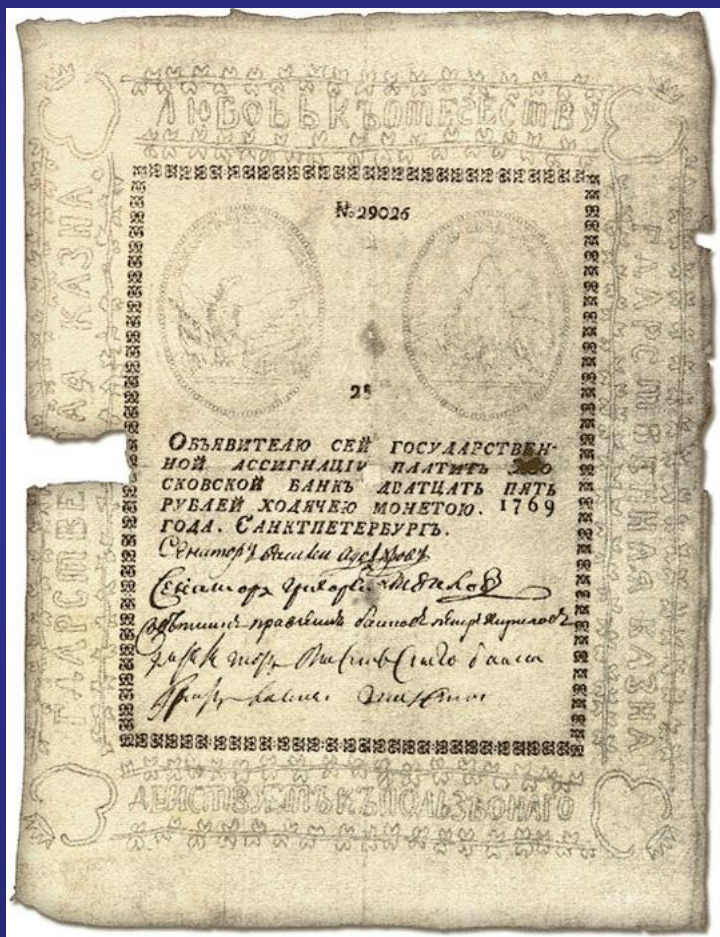 ЛЮБОВЬ КЪ ОТЕЧЕСТВУ
АЯ КАЗНА.
ГДАРСТВЕ
ГДАРСТВЕННАЯ КАЗНА
№ 29026
25
ОБЪЯВИТЕЛЮ СЕЙ ГОСУДАРСТВЕН-
НОЙ АССИГНАЦІИ ПЛАТИТЪ
СКОВСКОЙ БАНКЪ ДВАТЦАТЬ ПЯТЬ
РУБЛЕЙ ХОДЯЧЕЮ МОНЕТОЮ. 1769
ГОДА. САНКТПЕТЕРБУРГЪ.
Сенаторъ
Сенаторъ
правленія банковъ петръ
ДЕЙСТВУЕТЪ КЪ ПОЛЬЗЕ ОНАГО